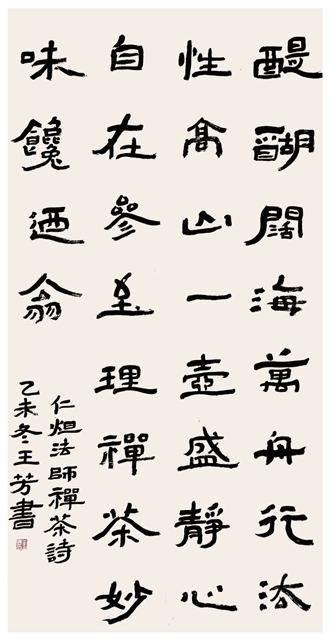 醍醐闊海萬舟行法
性高山一壺盛靜心
自在參至理禪茶妙
味饞迺翁
仁炟法師禪茶詩
乙未冬王芳書